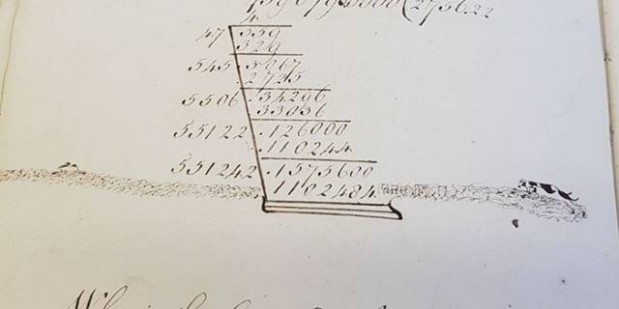 7596796.0000(2756.22
4
47 359
329
545 .3067
.2725
5506 .34296
33036
55122 .126000
.110244
551242 .1575600
1102484